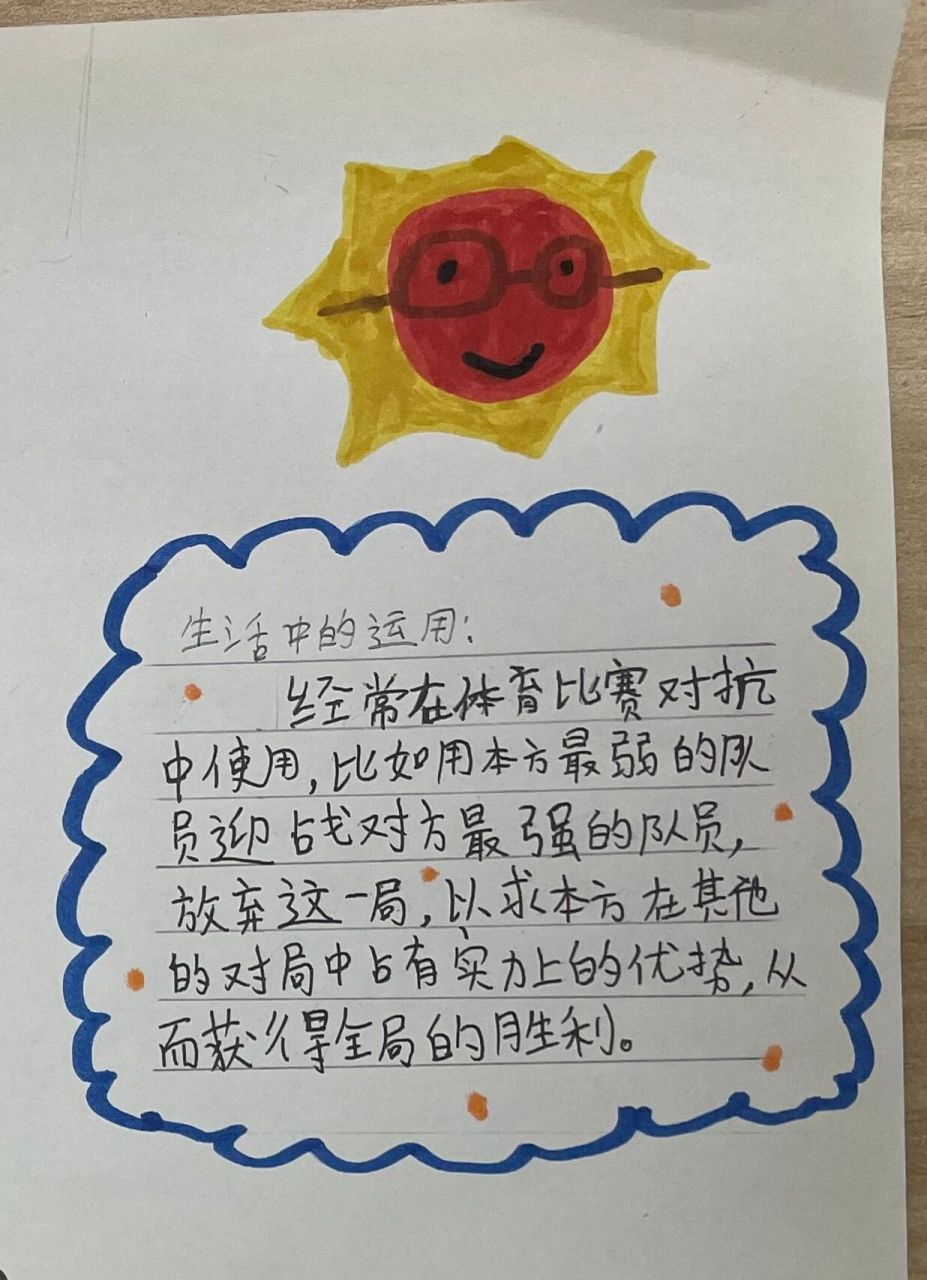 生活中的运用:
经常在体育比赛对抗
中使用,比如用本方最弱的队
员迎战对方最强的队员,
放弃这一局,以求本方在其他
的对局中占有实力上的优势,从
而获得全局的胜利。